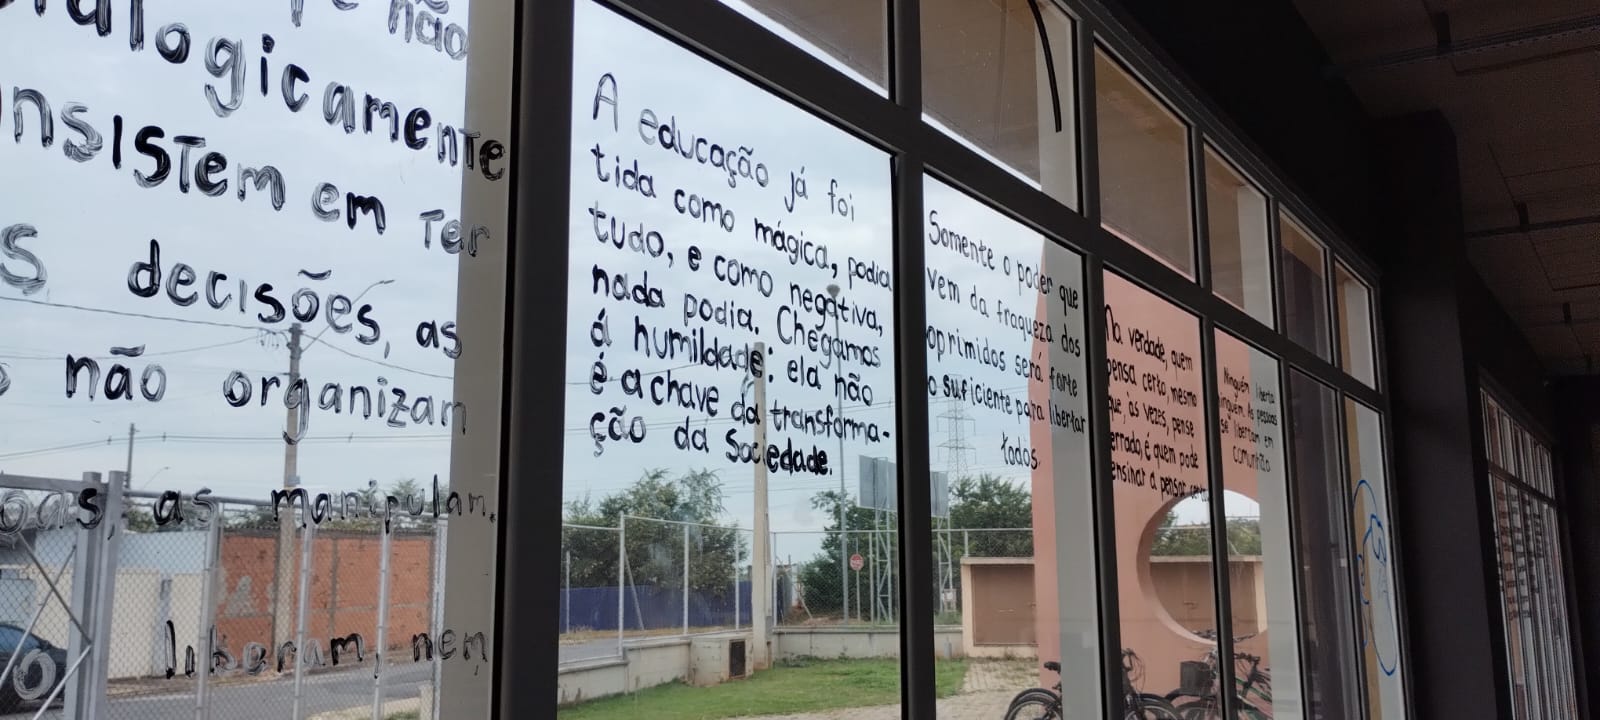 não
alogicamente
nsistem em ter
s decisões, as
não organizam
oas, as manipulam,
o liberam, nem
A educação já foi
tida como mágica, podia
tudo, e como negativa,
nada podia. Chegamos
á humildade: ela não
é a chave da transforma-
ção da Sociedade.
Somente o poder que
vem da fraqueza dos
oprimidos será forte
o suficiente para libertar
todos.
Na verdade, quem
pensa certo mesmo
que, às vezes, pense
errado, é quem pode
ensinar a pensar certo
Ninguém liberta
ninguém. As pessoas
se libertam em
comunhão